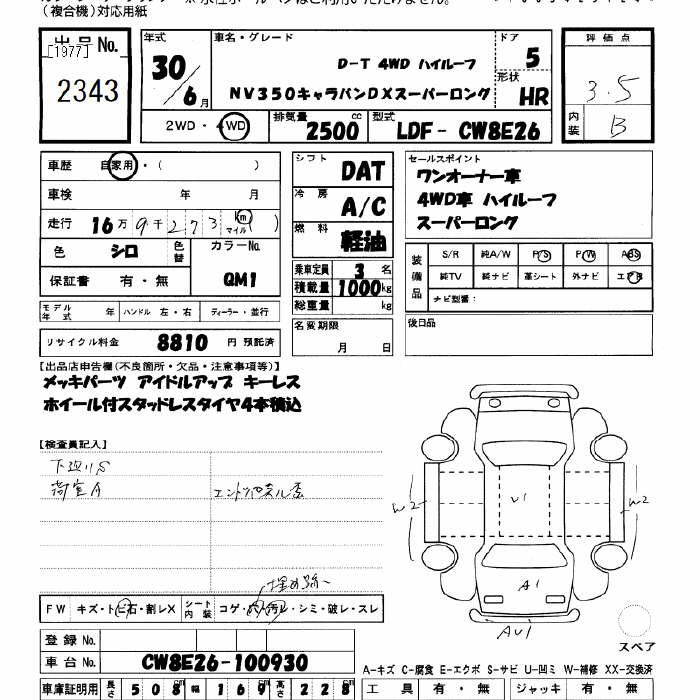 （複合機）対応用紙
出品No. [1977] 2343
年式 30/6月
車名・グレード D-T 4WD ハイルーフ
NV350キャラバンDXスーパーロング
ドア 5
形状 HR
評価点 3.5
内装 B
2WD・4WD 排気量 2500 cc 型式 LDF- CW8E26
車歴 自家用・（ ）
車検 年 月
走行 16万9千273 km マイル（ ）
色 シロ 色替 カラーNo. QM1
保証書 有・無
モデル年式 年 ハンドル 左・右 ディーラー・並行
リサイクル料金 8810 円 預託済
シフト DAT
冷房 A/C
燃料 軽油
乗車定員 3 名
積載量 1000 kg
総重量 kg
名変期限 月 日
セールスポイント
ワンオーナー車
4WD車 ハイルーフ
スーパーロング
装備品 S/R 純A/W P/S P/W ABS
純TV 純ナビ 革シート 外ナビ エアB
ナビ型番：
後日品
【出品店申告欄（不良箇所・欠品・注意事項等）】
メッキパーツ アイドルアップ キーレス
ホイール付スタッドレスタイヤ4本積込
【検査員記入】
下廻りS
荷室A
FW キズ・トビ石・割レX シート内張 コゲ・穴・汚レ・シミ・破レ・スレ
W2 U1 W2
A1
AU1
スペア
登録No.
車台No. CW8E26-100930
A-キズ C-腐食 E-エクボ S-サビ U-凹ミ W-補修 XX-交換済
車庫証明用 長さ 508 cm 幅 169 cm 高さ 228 cm
工具 有・無 ジャッキ 有・無